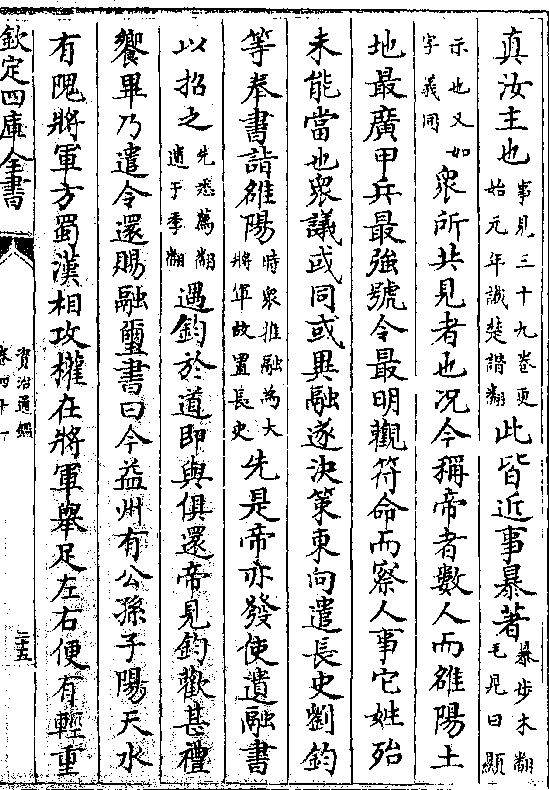 真汝主也事見三十九卷更始元年識楚譖翻此皆近事暴著暴步木翻毛晃曰顯
示也又如字義同衆所共見者也况今稱帝者數人而雒陽土
地最廣甲兵最強號令最明觀符命而察人事它姓殆
未能當也衆議或同或異融遂決策東向遣長史劉鈞
等奉書詣雒陽時衆推融為大將軍故置長史先是帝亦發使遺融書
以招之先悉薦翻遺于季翻遇鈞於道即與俱還帝見鈞歡甚禮
饗畢乃遣令還賜融璽書曰今益州有公孫子陽天水
有隗將軍方蜀漢相攻權在將軍舉足左右便有輕重
欽定四庫全書
資治通鑑
卷四十一
三五